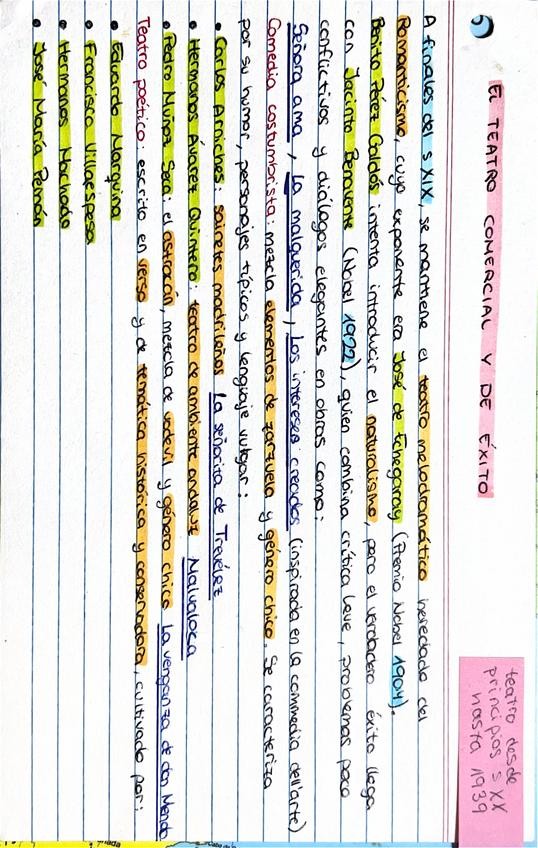 5
EL TEATRO COMERCIAL Y DE ÉXITO
teatro desde
principios s XX
hasta 1939
A finales del s XIX, se mantiene el teatro melodramático heredado del
Romanticismo, cuyo exponente era José de Echegaray (Premio Nobel 1904).
Benito Pérez Galdós intenta introducir el naturalismo, pero el verdadero éxito llega
con Jacinto Benavente (Nobel 1922), quien combina crítica leve, problemas poco
conflictivos y diálogos elegantes en obras como:
Señora ama, La malquerida, Los intereses creados (inspirada en la commedia dell'arte)
Comedia costumbrista: mezcla elementos de zarzuela y género chico. Se caracteriza
por su humor, personajes típicos y lenguaje vulgar:
• Carlos Arniches: sainetes madrileños La señorita de Trevélez
• Hermanos Álvarez Quintero: teatro de ambiente andaluz Malvaloca
• Pedro Muñoz Seca: el astracán, mezcla de vodevil y género chico La venganza de don Mendo
Teatro poético: escrito en verso y de temática histórica y conservadora, cultivado por:
• Eduardo Marquina
• Francisco Villaespesa
• Hermanos Machado
• José María Pemán